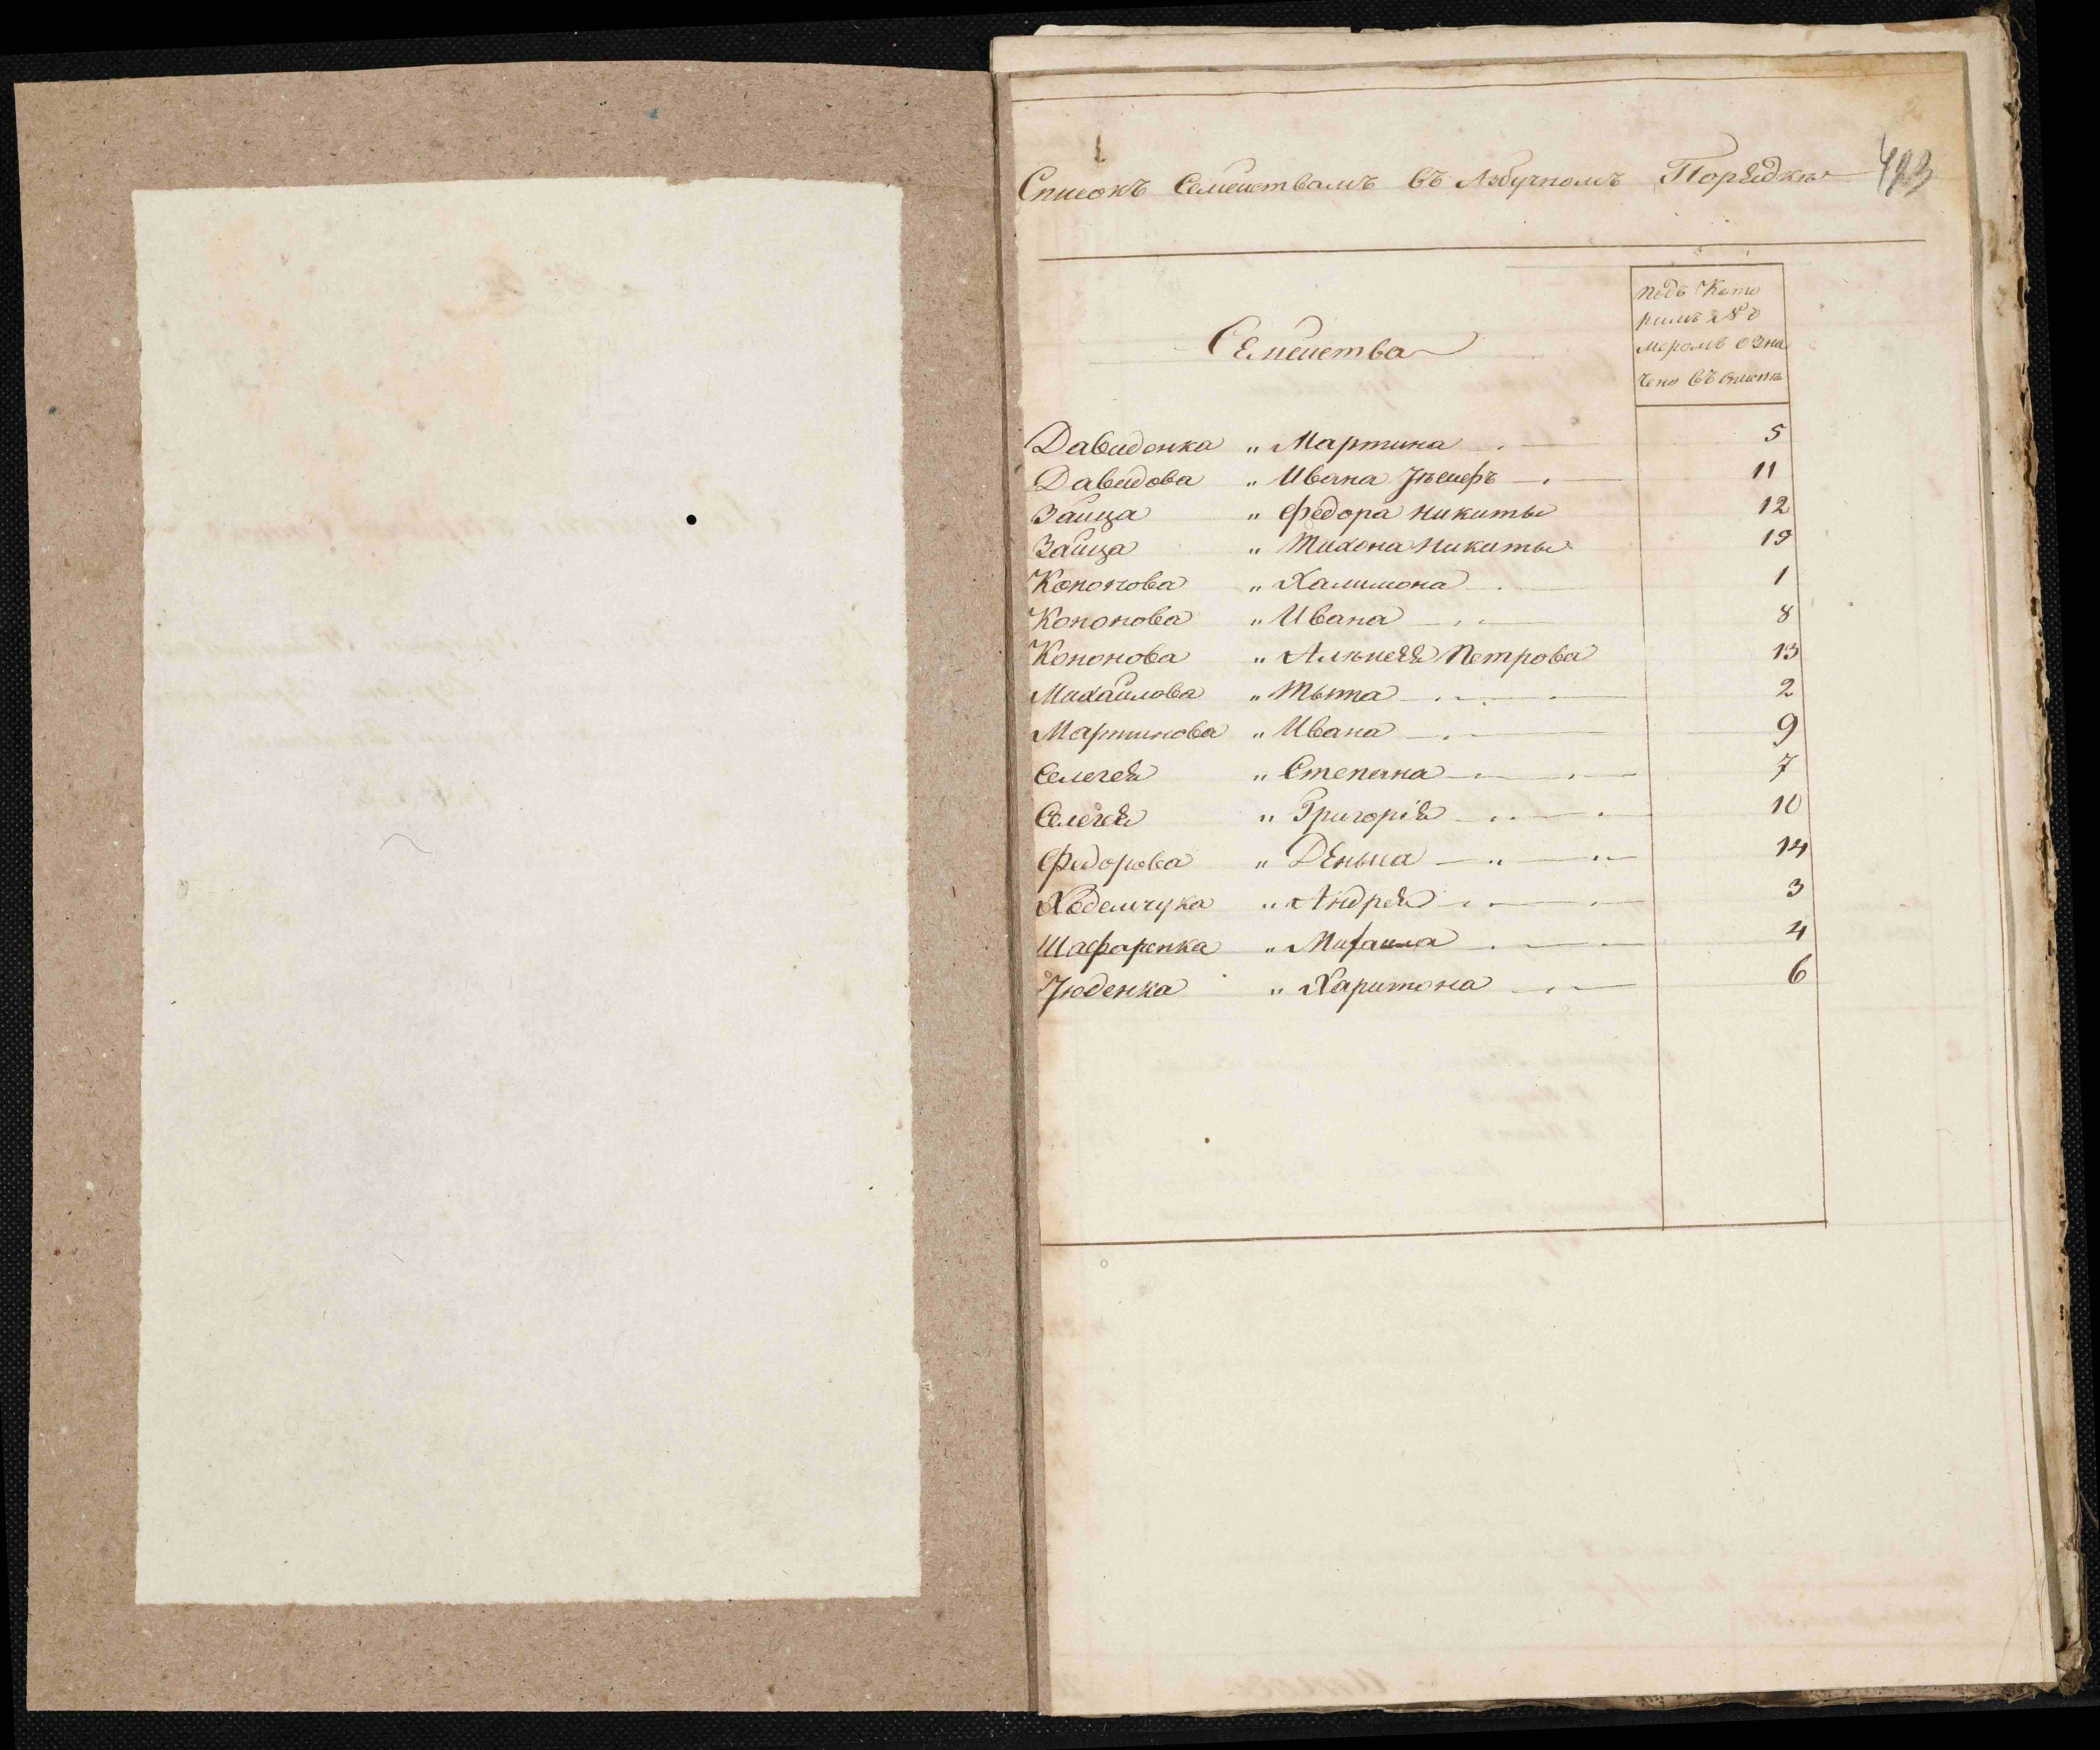 483
Списокъ Семействамъ въ Азбучномъ Порядкѣ
Семейства
подъ Кото
римъ Но
меромъ озна
чено въ спискѣ
Давиденка „ Мартина 5
Давидова „ Ивана 11
Зайца „ Федора Никиты 12
Зайца „ Тихона Никиты 15
Кононова „ Халимона 1
Кононова „ Ивана 8
Кононова „ Алѣксѣя Петрова 13
Михайлова „ Тыта 2
Мартинова „ Ивана 9
Селегея „ Степана 7
Селегея „ Григорія 10
Федорова „ Деныса 14
Андрея 3
Шафаренка „ Михаила 4
Юденка „ Харитона 6